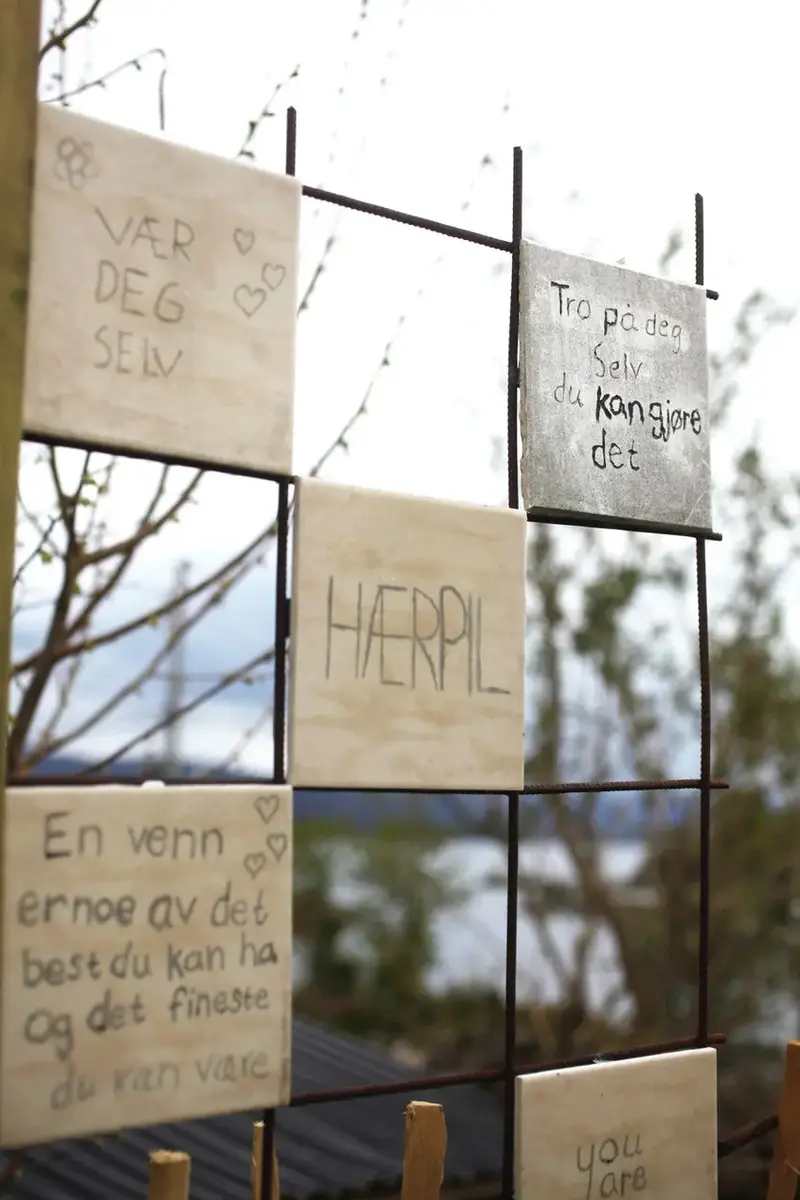 VÆR
DEG
SELV
Tro på deg
Selv
du kan gjøre
det
HÆRPIL
En venn
er noe av det
best du kan ha
og det fineste
du kan være
you
are